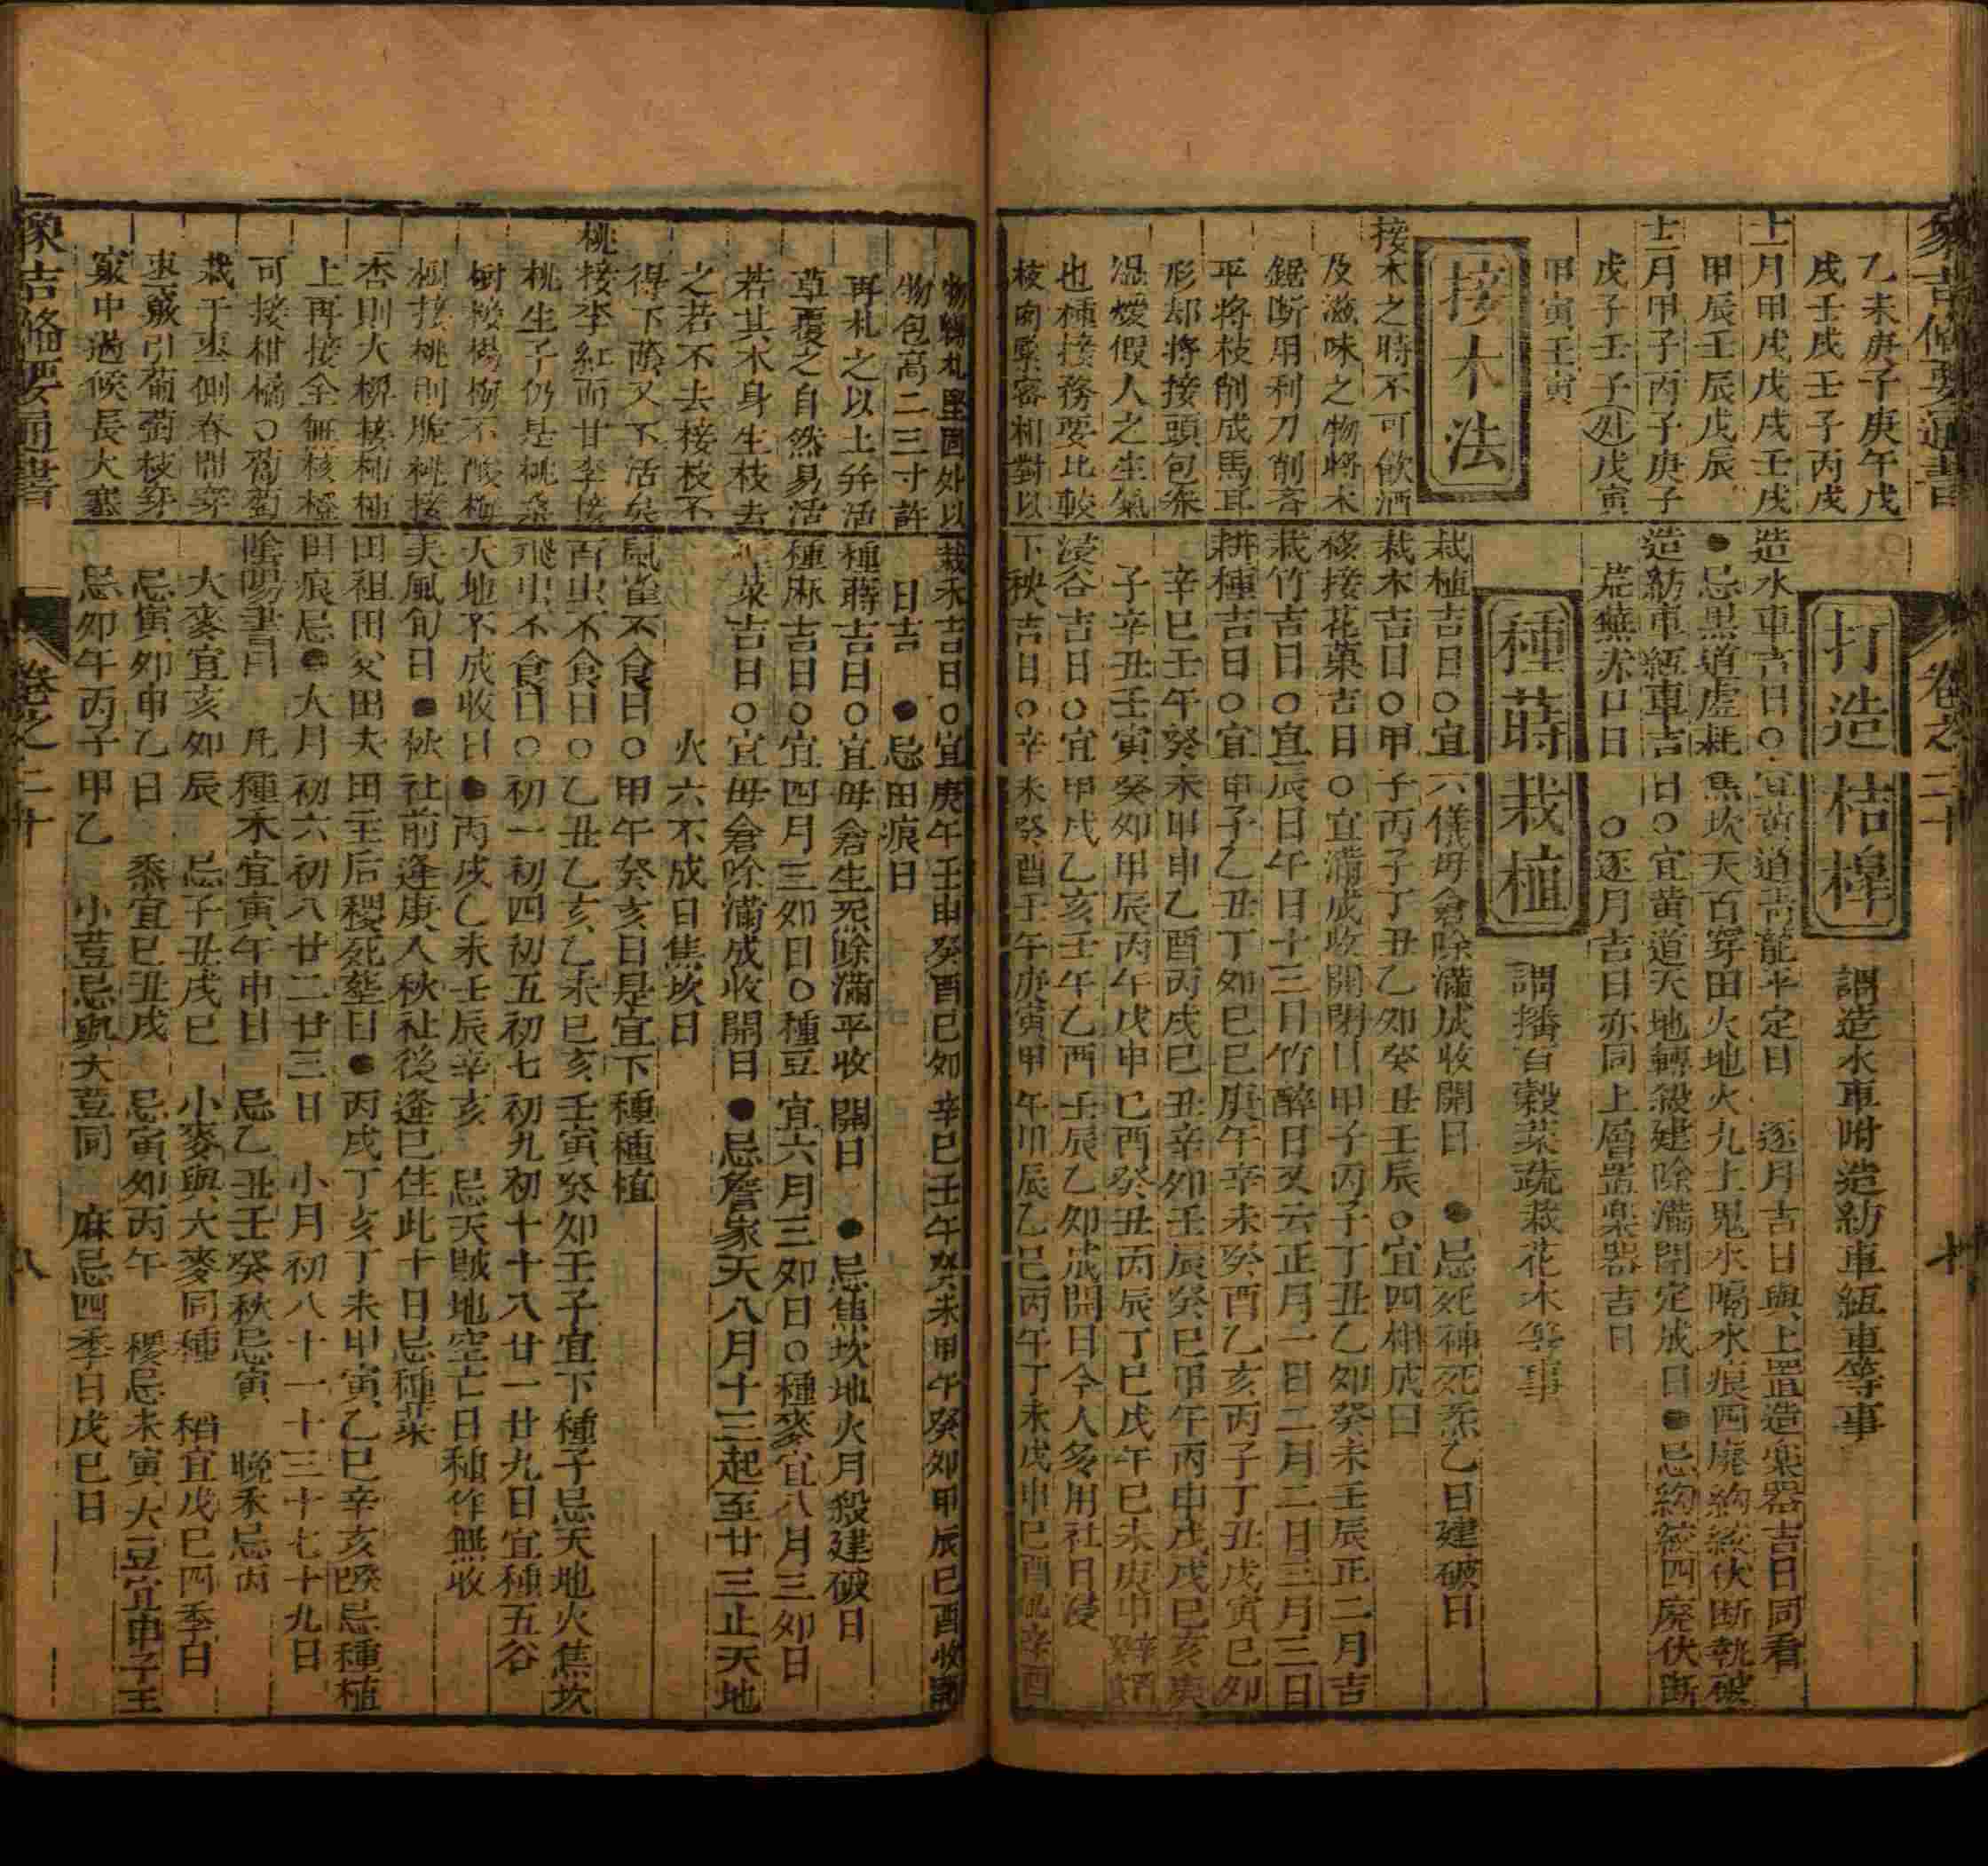 象吉備要通書
卷之二十
乙未庚子庚午戊
戌壬戌壬子丙戌
十一月甲戌戊戌壬戌
甲辰壬辰戊辰
十二月甲子丙子庚子
戊子壬子(外)戊寅
甲寅壬寅
接木法
接木之時不可飲酒
及滋味之物將木
鋸斷用利刀削齊
平將枝削成馬耳
形却將接頭包柰
温煖假人之生氣
也種接務要比較
枝向緊密相對以
打造桔槔
謂造水車附造紡車絚車等事
造水車吉日○宜黄道青龍平定日 逐月吉日與上置造樂器吉日同看
●忌黑道虛耗焦坎天百穿田火地火九土鬼水隔水痕四廢絇絞伏断執破
造紡車絚車吉日○宜黄道天地轉殺建除滿閉定成日●忌絇絞四廢伏断
荒蕪赤口日 ○逐月吉日亦同上層置樂器吉日
種蒔栽植
謂播百穀菜蔬栽花木等事
栽植吉日○宜六儀母倉除滿成收開日 ●忌死神死炁乙日建破日
栽木吉日○甲子丙子丁丑乙夘癸丑壬辰○宜四相成日
移接花菓吉日○宜滿成收開閉日甲子丙子丁丑乙夘癸未壬辰正二月吉
栽竹吉日○宜辰日午日十三日竹醉日又云正月一日二月二日三月三日
耕種吉日○宜甲子乙丑丁夘巳巳庚午辛未癸酉乙亥丙子丁丑戊寅巳夘
辛巳壬午癸未甲申乙酉丙戌巳丑辛夘壬辰癸巳甲午丙申戊戌巳亥庚
子辛丑壬寅癸夘甲辰丙午戊申巳酉癸丑丙辰丁巳戊午巳未庚申辛酉
浸谷吉日○宜甲戌乙亥壬午乙酉壬辰乙夘成開日今人多用社日浸
下秧吉日○辛未癸酉壬午庚寅甲午甲辰乙巳丙午丁未戊申巳酉 辛酉
物包高二三寸許
再札之以土弁活
草覆之自然易活
若其木身生枝去
之若不去接枝不
得下蔭又不活矣
桃接李紅而甘李接
桃生子仍是桃桑
樹接楊梅不酸梅
樹接桃則脆桃接
杏則大柳接柿柿
上再接全無核橙
可接柑橘○葡萄
栽于棗側春間穿
棗竅引葡萄枝穿
竅中過候長大塞
栽禾吉日○宜庚午壬申癸酉巳夘辛巳壬午癸未甲午癸夘甲辰巳酉收開
日吉 ●忌田痕日
種蒔吉日○宜母倉生炁除滿平收開日 ●忌焦坎地火月殺建破日
種麻吉日○宜四月三夘日○種豆宜六月三夘日○種麥宜八月三夘日
種菜吉日○宜母倉除滿成收開日●忌詹家天八月十三起至廿三止天地
火六不成日焦坎日
鼠雀不食日○甲午癸亥日是宜下種種植
百虫不食日○乙丑乙亥乙未巳亥壬寅癸夘壬子宜下種子忌天地火焦坎
飛虫不食日○初一初四初五初七初九初十十八廿一廿九日宜種五谷
天地不成收日●丙戌乙未壬辰辛亥 忌天賊地空亡日種作無收
夫風旬日●秋社前逢庚入秋社後逢巳住此十日忌種菜
田祖田父田夫田主后稷死塟日●丙戌丁亥丁未甲寅乙巳辛亥癸巳忌種植
田痕忌●大月初六初八廿二廿三日 小月初八十一十三十七十九日
陰陽書曰 凡種禾宜寅午申日 忌乙丑壬癸秋忌寅 晚禾忌丙
大麥宜亥夘辰 忌子丑戌巳 小麥與大麥同種 稻宜戊巳四季日
忌寅夘申乙日 黍宜巳丑戌 忌寅夘丙午 稷忌未寅大豆宜申子壬
忌夘午丙子甲乙 小荳忌與大荳同 麻忌四季日戊巳日
象吉備要通書
卷之二十
八